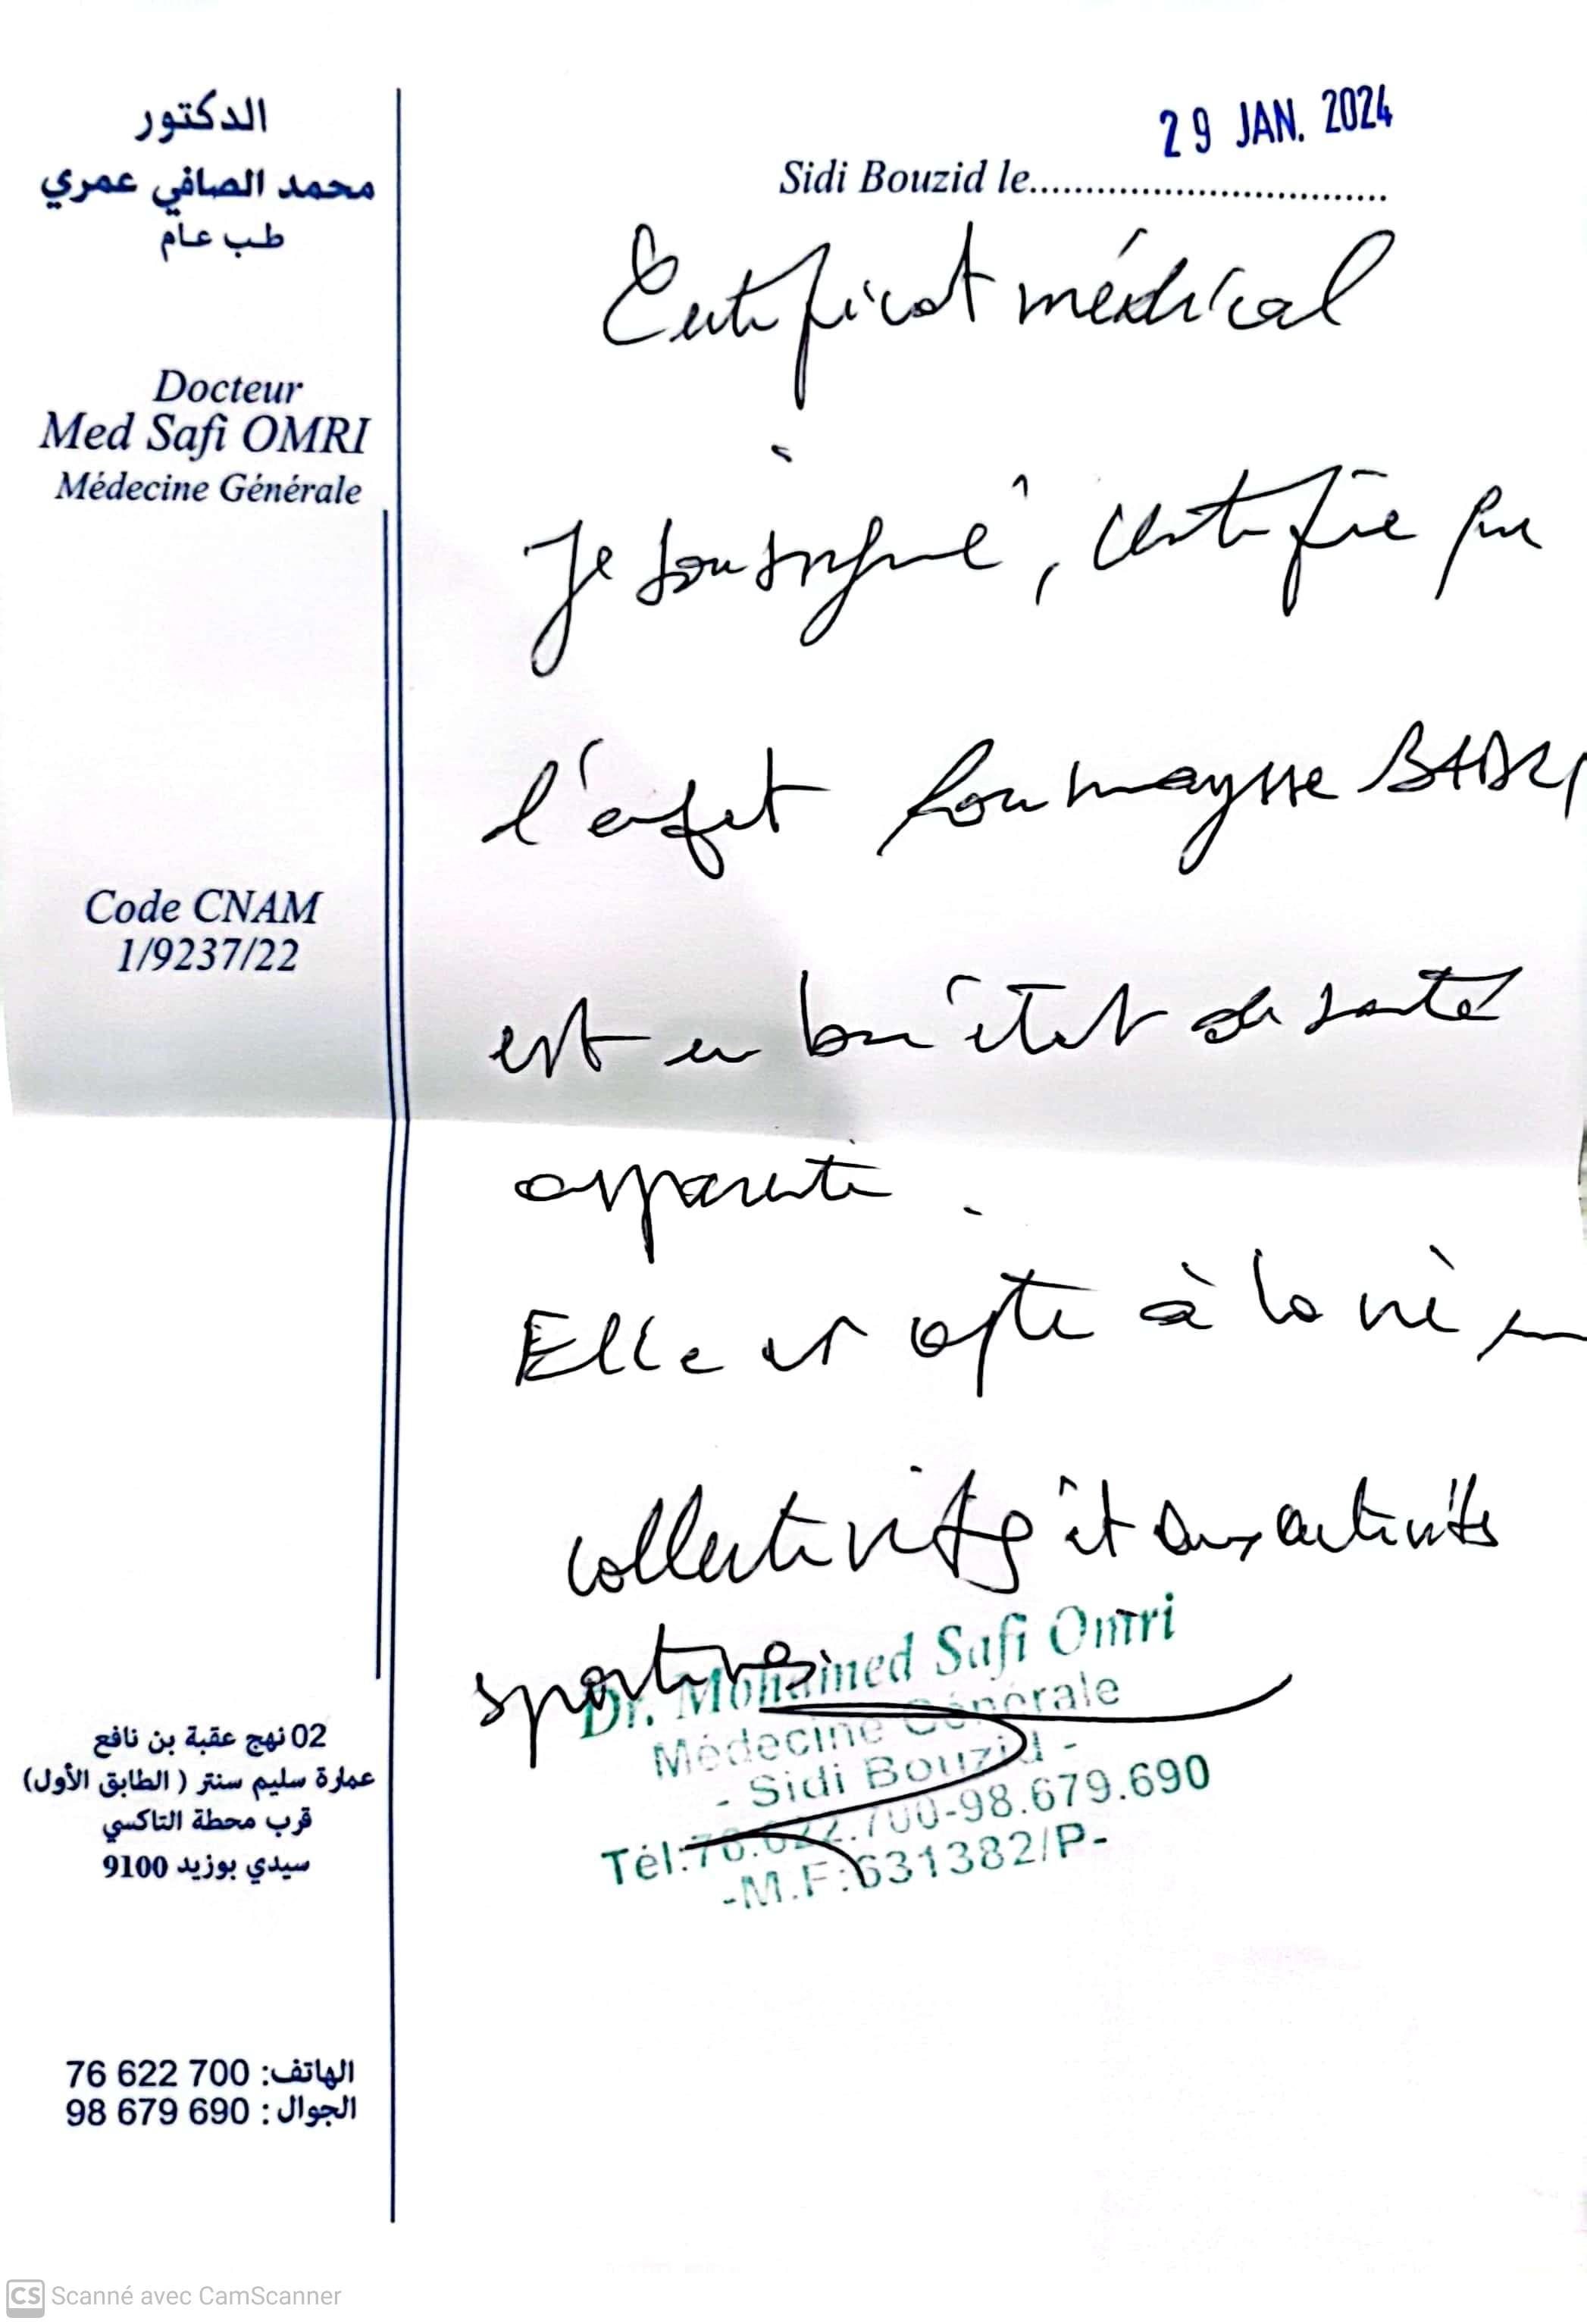 الدكتور
محمد الصافي عمري
طب عام
Docteur
Med Safi OMRI
Médecine Générale
Code CNAM
1/9237/22
02 نهج عقبة بن نافع
عمارة سليم سنتر (الطابق الأول)
قرب محطة التاكسي
سيدي بوزيد 9100
الهاتف: 76 622 700
الجوال: 98 679 690
29 JAN. 2024
Sidi Bouzid le
Certificat médical
Je soussigné, certifie que
l'enfant
est en bon état de santé
apparente.
Elle est apte à la vie en
collectivité et aux activités
sportives
Dr. Mohamed Safi Omri
Médecine Générale
- Sidi Bouzid -
Tél:76.622.700-98.679.690
-M.F:631382/P-
CS Scanné avec CamScanner